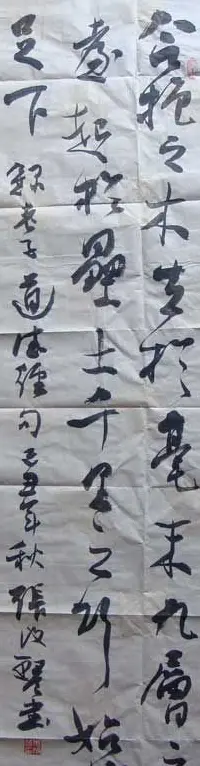 合抱之木生於毫末九層之
臺起於壘土千里之行始
足下 錄老子道德經句己丑年秋張琴書